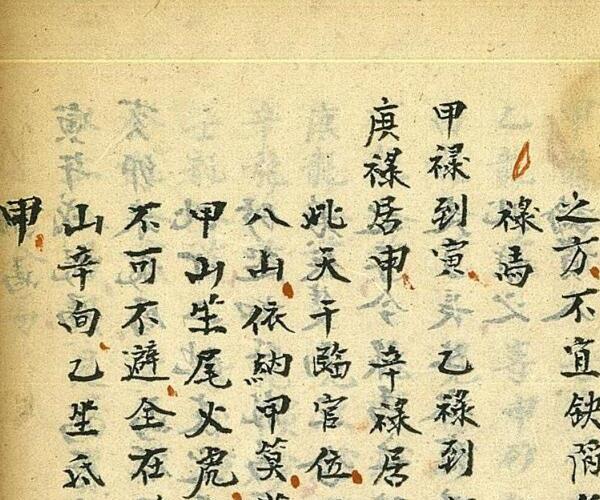 之方不宜缺陷
禄馬
甲禄到寅 乙禄到
庚禄居申 辛禄居
天干臨官位
八山依納甲
甲山坐尾火虎
不可不避全在
山辛向乙坐氐
甲